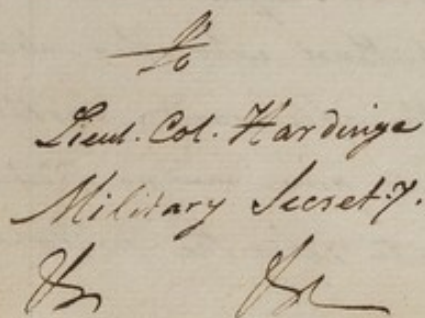 To
Lieut. Col. Hardinge
Military Secret.y.
&c &c